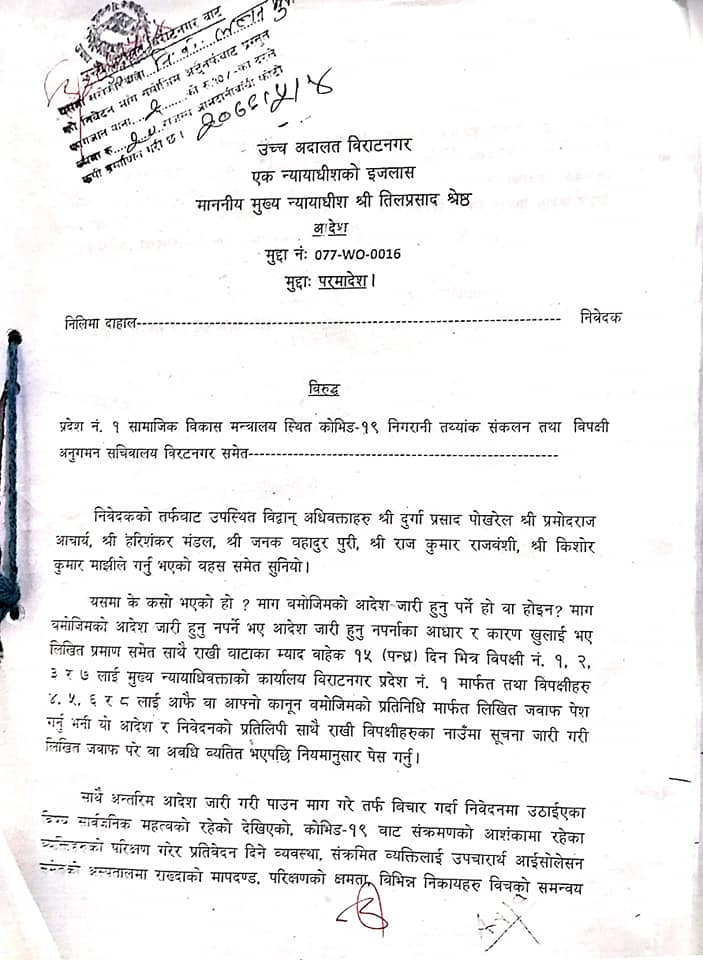 उच्च अदालत विराटनगर
एक न्यायाधीशको इजलास
माननीय मुख्य न्यायाधीश श्री तिलप्रसाद श्रेष्ठ
आदेश
मुद्दा नंः 077-WO-0016
मुद्दाः परमादेश।
निलिमा दाहाल---------------------------------------------------------------------- निवेदक
विरुद्ध
प्रदेश नं. १ सामाजिक विकास मन्त्रालय स्थित कोभिड-१९ निगरानी तथ्यांक संकलन तथा विपक्षी
अनुगमन सचिवालय विरटनगर समेत--------------------------------------------------
निवेदकको तर्फवाट उपस्थित विद्वान् अधिवक्ताहरु श्री दुर्गा प्रसाद पोखरेल श्री प्रमोदराज
आचार्य, श्री हरिशंकर मंडल, श्री जनक वहादुर पुरी, श्री राज कुमार राजवंशी, श्री किशोर
कुमार माझीले गर्नु भएको वहस समेत सुनियो।
यसमा के कसो भएको हो ? माग वमोजिमको आदेश जारी हुनु पर्ने हो वा होइन? माग
वमोजिमको आदेश जारी हुनु नपर्ने भए आदेश जारी हुनु नपर्नाका आधार र कारण खुलाई भए
लिखित प्रमाण समेत साथै राखी वाटाका म्याद वाहेक १५ (पन्ध्र) दिन भित्र विपक्षी नं. १, २,
३ र ७ लाई मुख्य न्यायाधिवक्ताको कार्यालय विराटनगर प्रदेश नं. १ मार्फत तथा विपक्षीहरु
४, ५, ६ र ८ लाई आफै वा आफ्नो कानून वमोजिमको प्रतिनिधि मार्फत लिखित जवाफ पेश
गर्नु भनी यो आदेश र निवेदनको प्रतिलिपी साथै राखी विपक्षीहरुका नाउँमा सूचना जारी गरी
लिखित जवाफ परे वा अवधि व्यतित भएपछि नियमानुसार पेस गर्नु।
साथै अन्तरिम आदेश जारी गरी पाउन माग गरे तर्फ विचार गर्दा निवेदनमा उठाईएका
विषय सार्वजनिक महत्वको रहेको देखिएको, कोभिड-१९ वाट संक्रमणको आशंकामा रहेका
व्यक्तिहरुको परिक्षण गरेर प्रतिवेदन दिने व्यवस्था, संक्रमित व्यक्तिलाई उपचारार्थ आईसोलेसन
समेतको अस्पतालमा राख्दाको मापदण्ड, परिक्षणको क्षमता, विभिन्न निकायहरु विचको समन्वय